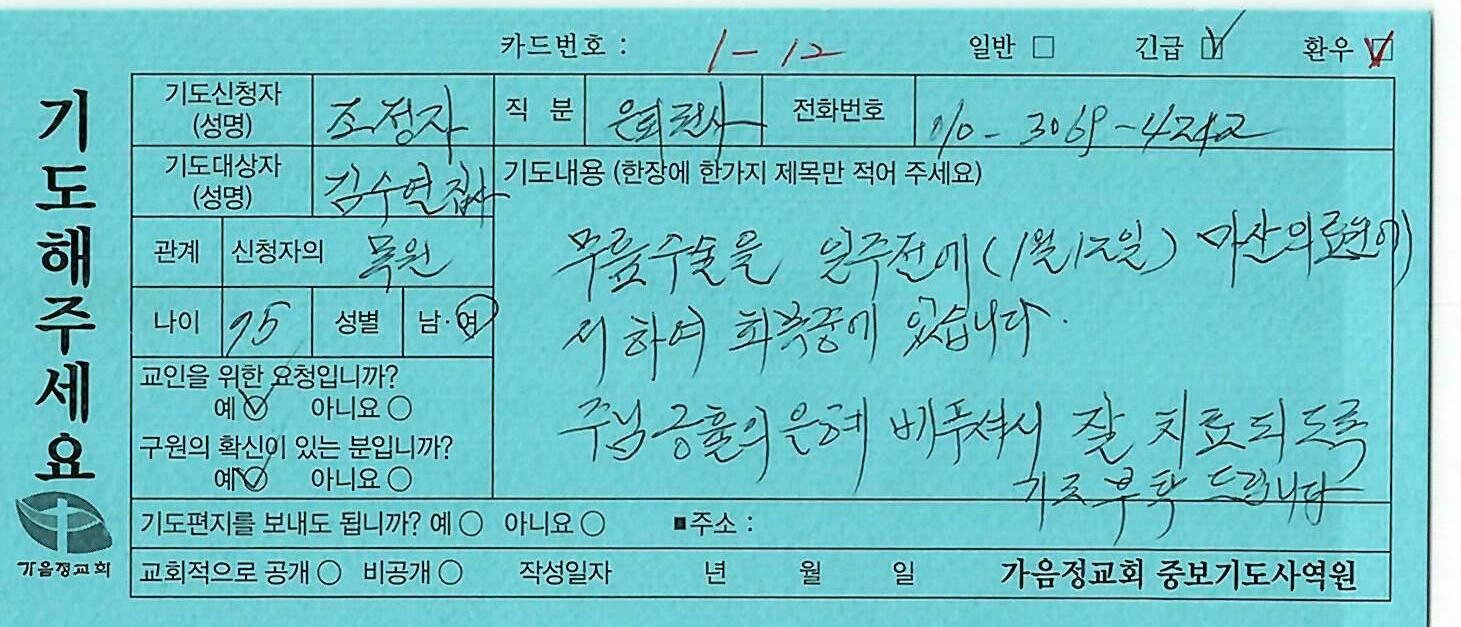 카드번호 : 1-12 일반 □ 긴급 ☑ 환우 ☑
기도해주세요
기도신청자 (성명) 조정자 직 분 은퇴권사 전화번호 010-3069-4242
기도대상자 (성명) 김수열집사 기도내용 (한장에 한가지 제목만 적어 주세요)
관계 신청자의 목원
무릎수술을 일주전에 (1월12일) 마산의료원에
나이 75 성별 남·여
서 하여 회복중에 있습니다.
교인을 위한 요청입니까?
예 ☑ 아니요 ○
주님 긍휼의 은혜 베푸셔서 잘 치료되도록
구원의 확신이 있는 분입니까?
예 ☑ 아니요 ○
기도부탁 드립니다
기도편지를 보내도 됩니까? 예 ○ 아니요 ○ ■주소 :
가음정교회
교회적으로 공개 ○ 비공개 ○ 작성일자 년 월 일 가음정교회 중보기도사역원